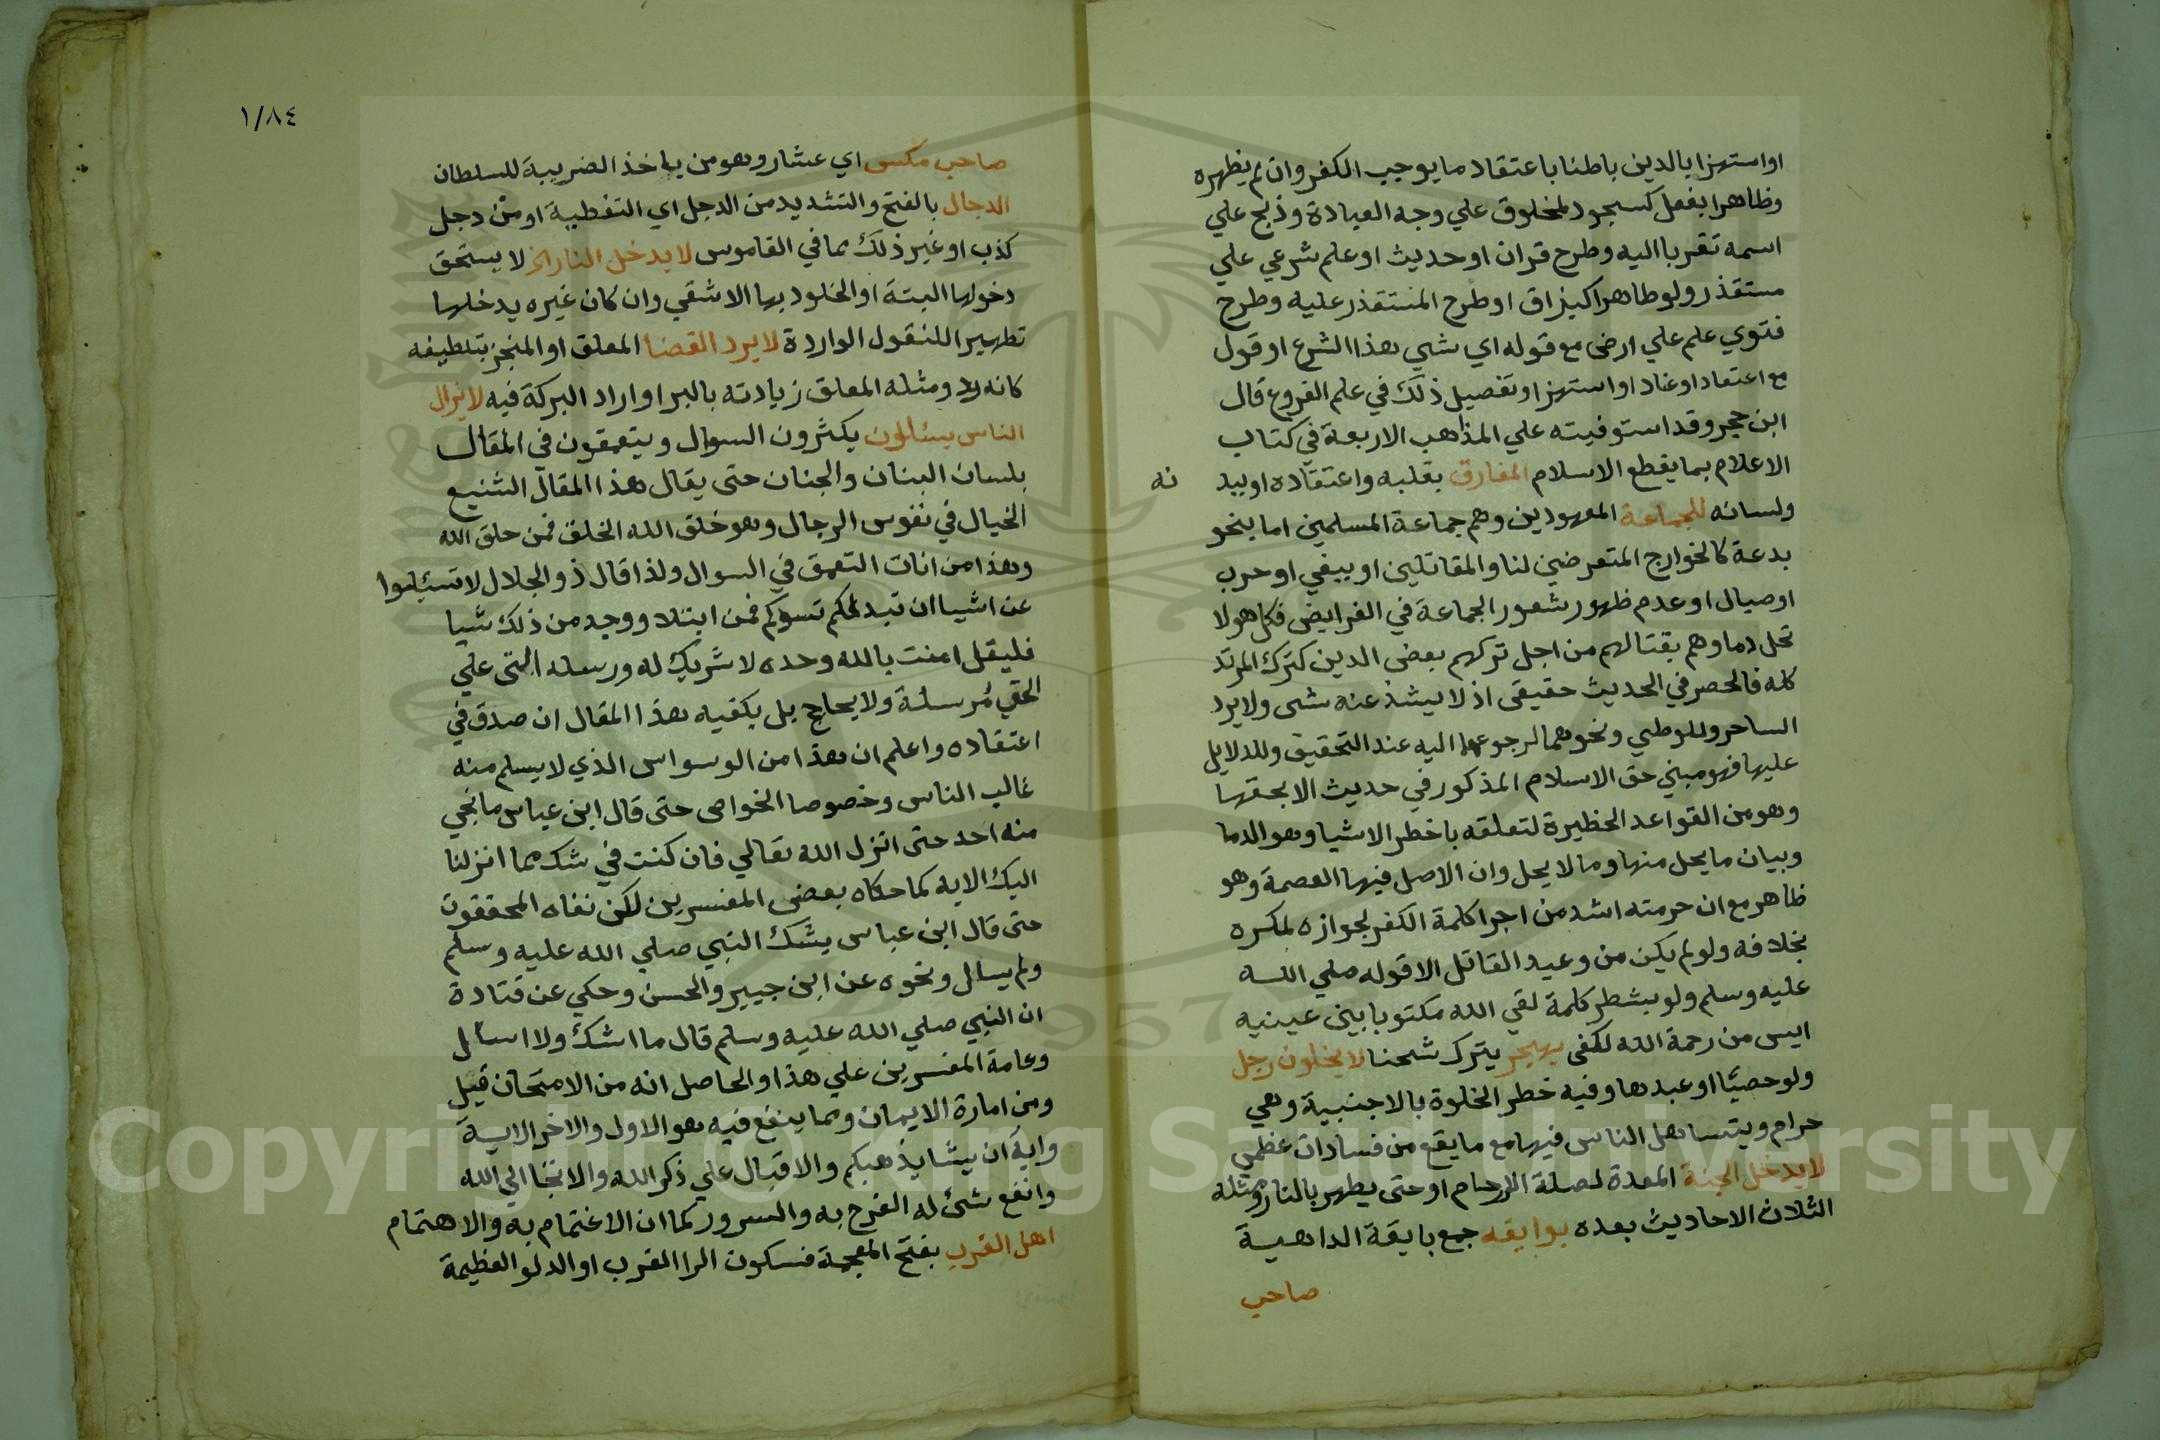 او استهزا بالدين باطنا باعتقاد ما يوجب الكفر وان لم يظهره
وظاهرا بفعل كسجود لمخلوق علي وجه العبادة وذبح علي
اسمه تقربا اليه وطرح قران او حديث او علم شرعي علي
مستقذر ولو طاهرا كبزاق او طرح المستقذر عليه وطرح
فتوي علم علي ارض مع قوله اي شي هذا الشرع او قول
مع اعتقاد او عناد او استهزا وتفصيل ذلك في علم الفروع قال
ابن حجر وقد استوفيته علي المذاهب الاربعة في كتاب
الاعلام بما يقطع الاسلام المفارق بقلبه واعتقاده او ببد نه
ولسانه للجماعة المعهودين وهم جماعة المسلمين اما بنحو
بدعة كالخوارج المتعرضين لنا والمقاتلين او ببغي او حرب
او صيال او عدم ظهور شعور الجماعة في الفرايض فكل هولا
تحل دماوهم بقتالهم من اجل تركهم بعض الدين كترك المرتد
كله فالحصر في الحديث حقيقي اذ لا يشذ عنه شي ولا يرد
الساحر واللوطي ونحوهما لرجوعهما اليه عند التحقيق وللدلايل
عليها فهو مبني حق الاسلام المذكور في حديث الا بحقها
وهو من القواعد الخطيرة لتعلقه باخطر الاشيا وهو الدما
وبيان ما يحل منها وما لا يحل وان الاصل فيها العصمة وهو
ظاهر مع ان حرمته اشد من اجرا كلمة الكفر لجوازه لمكره
بخلافه ولو لم يكن من وعيد القاتل الا قوله صلي الله
عليه وسلم ولو بشطر كلمة لقي الله مكتوبا بين عينيه
ايس من رحمة الله لكفى يهجر يترك شحنا لا يخلون رجل
ولو خصيّا او عبدها وفيه خطر الخلوة بالاجنبية وهي
حرام ويتساهل الناس فيها مع ما يقع من فسادات عظمي
لا يدخل الجنة المعدة لصلة الارحام او حتى يطهر بالنار ومثله
الثلاث الاحاديث بعده بوايقه جمع بايقة الداهية
صاحب
١/٨٤
صاحب مكس اي عشار وهو من ياخذ الضريبة للسلطان
الدجال بالفتح والتشديد من الدجل اي التغطية او من دجل
كذب او غير ذلك مما في القاموس لا يدخل النار الخ لا يستحق
دخولها البتة او الخلود بها الا شقي وان كان غيره يدخلها
تطهيرا للنقول الواردة لا يرد القضا المعلق او المنجز بتلطيفه
كانه رد ومثله المعلق زيادته بالبر او اراد البركة فيه لا يزال
الناس يسئلون يكثرون السوال ويتعمقون في المقال
بلسان البنان والجنان حتى يقال هذا المقال الشنيع
الخيال في نفوس الرجال وهو خلق الله الخلق فمن خلق الله
وهذا من افات التعمق في السوال ولذا قال ذو الجلال لا تسئلوا
عن اشيا ان تبد لكم تسوكم فمن ابتلا ووجد من ذلك شيا
فليقل امنت بالله وحده لا شريك له ورسله التى علي
الحق مُرسلة ولا يحاجج بل يكفيه هذا المقال ان صدق في
اعتقاده واعلم ان هذا من الوسواس الذي لا يسلم منه
غالب الناس وخصوصا الخواص حتى قال ابن عباس ما نجي
منه احد حتى انزل الله تعالي فان كنت في شك مما انزلنا
اليك الايه كما حكاه بعض المفسرين لكن نفاه المحققون
حتى قال ابن عباس يشك النبي صلي الله عليه وسلم
ولم يسال ونحوه عن ابن جبير والحسن وحكي عن قتادة
ان النبي صلي الله عليه وسلم قال ما اشك ولا اسال
وعامة المفسرين علي هذا والحاصل انه من الامتحان قيل
ومن امارة الايمان ومما ينفع فيه هو الاول والاخر الاية
واية ان يشا يذهبكم والاقبال علي ذكر الله والالتجا الي الله
وانفع شئ له الفرح به والسرور كما ان الاغتمام به والاهتمام
اهل الغرب بفتح المعجمة فسكون الرا الغرب او الدلو العظيمة
1957
Copyright © King Saud University